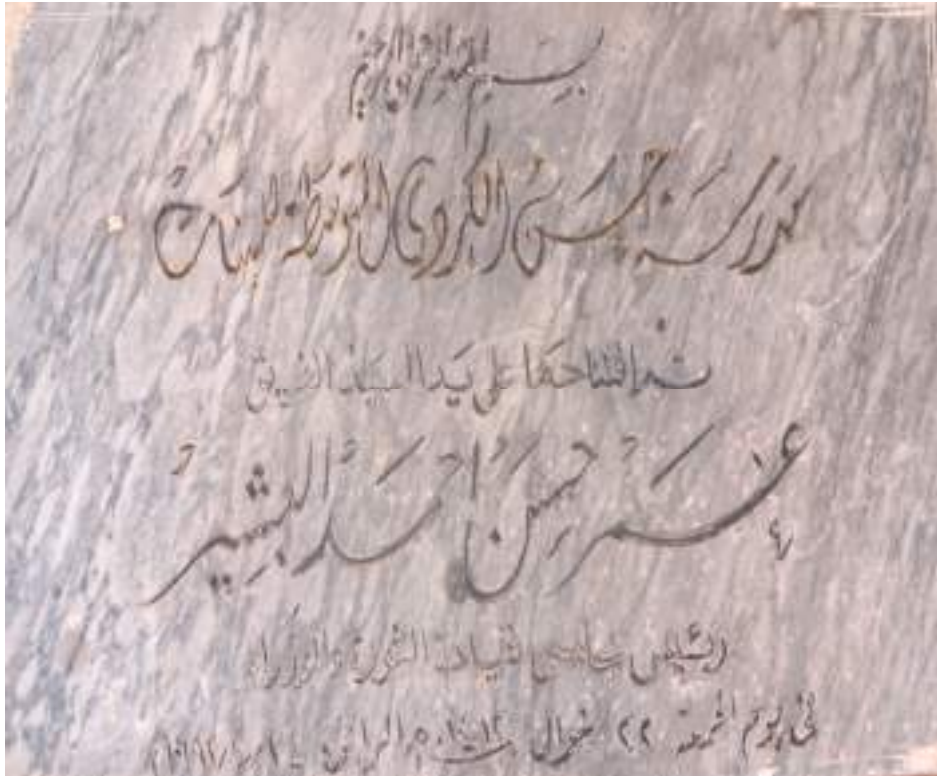 بسم الله الرحمن الرحيم
مدرسة حسن الكردي المتوسطة للبنات
تم افتتاحها على يد السيد الفريق
عمر حسن احمد البشير
رئيس مجلسي قيادة الثورة والوزراء
في يوم الجمعة ٢٢ شوال الموافق